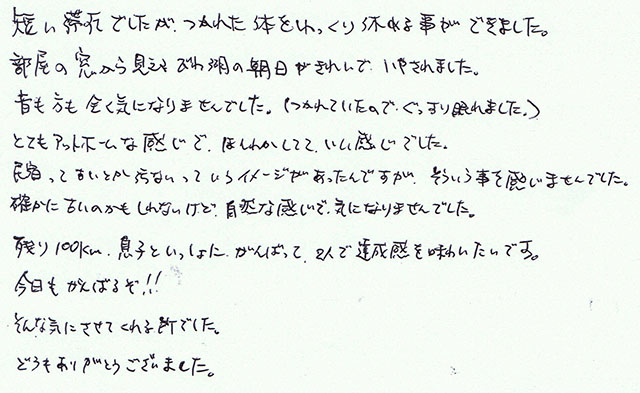 短い滞在でしたが、つかれた体をゆっくり休める事ができました。
部屋の窓から見えるびわ湖の朝日がきれいで、いやされました。
音も方も全く気になりませんでした。(つかれていたので、ぐっすり眠れました。)
とてもアットホームな感じで、ほんわかしてて、いい感じでした。
民宿って古いとか汚ないっていうイメージがあったんですが、そういう事を感じませんでした。
確かに古いのかもしれないけど、自然な感じで、気になりませんでした。
残り100km、息子といっしょに、がんばって、2人で達成感を味わいたいです。
今日もがんばるぞ!!
そんな気にさせてくれる所でした。
どうもありがとうございました。